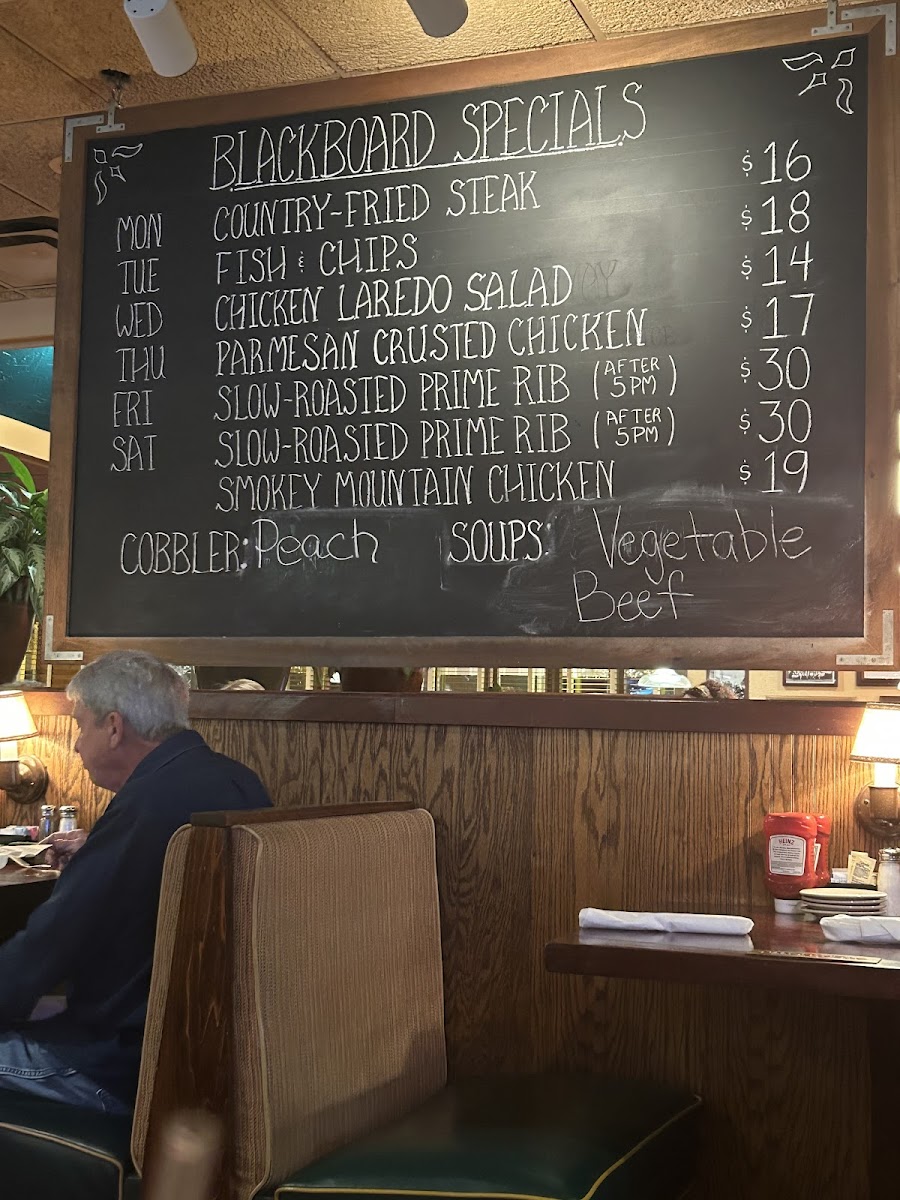 BLACKBOARD SPECIALS
MON COUNTRY-FRIED STEAK $16
TUE FISH & CHIPS $18
WED CHICKEN LAREDO SALAD $14
THU PARMESAN CRUSTED CHICKEN $17
FRI SLOW-ROASTED PRIME RIB (AFTER 5PM) $30
SAT SLOW-ROASTED PRIME RIB (AFTER 5PM) $30
SMOKEY MOUNTAIN CHICKEN $19
COBBLER: Peach SOUPS: Vegetable
Beef
HEINZ